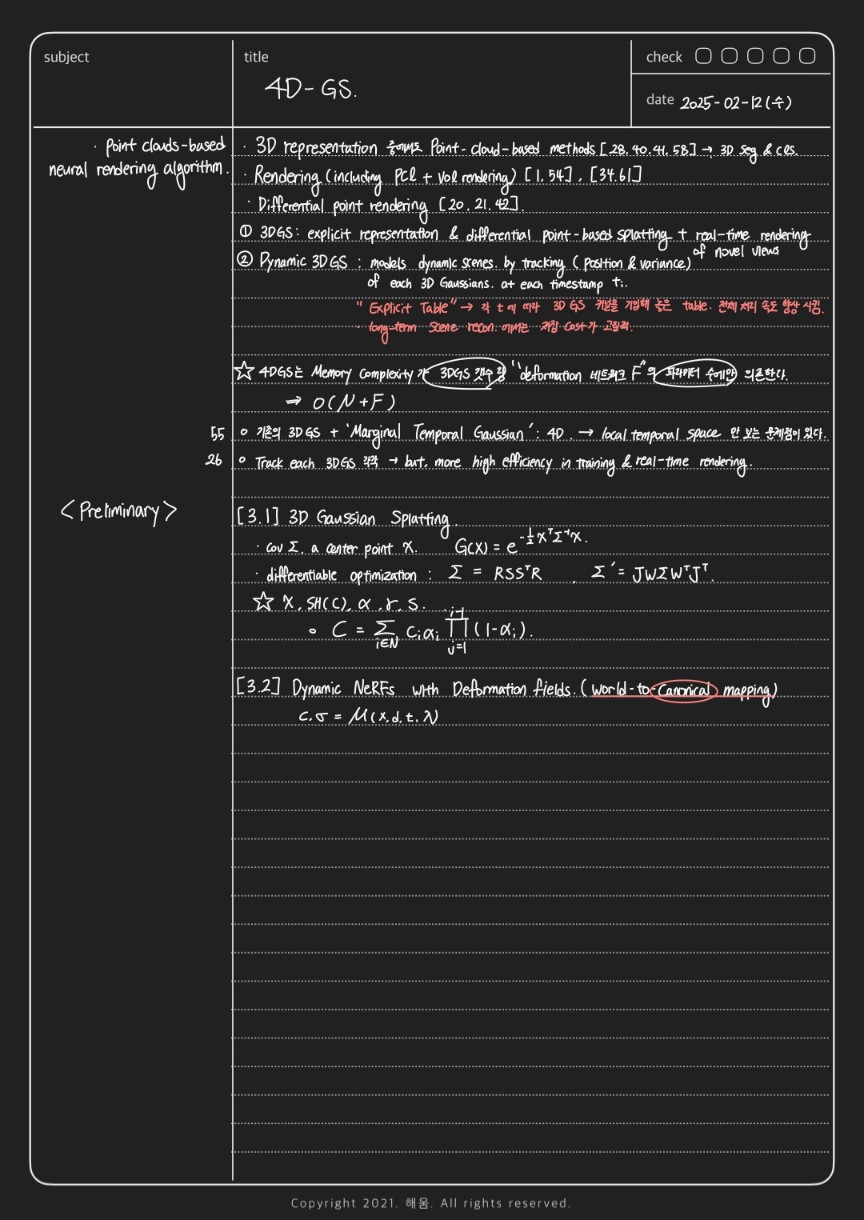 subject
title
check
4D-GS.
date 2025-02-12(수)
· point clouds-based
neural rendering algorithm.
· 3D representation 중에서도 Point-cloud-based methods [28.40.41.58] → 3D seg & cls.
· Rendering (including PCl + Vol rendering) [1.54], [34.61]
· Differential point rendering [20.21.42].
① 3DGS: explicit representation & differential point-based splatting + real-time rendering
of novel views
② Dynamic 3DGS : models dynamic scenes. by tracking (position & variance)
of each 3D Gaussians. at each timestamp ti.
"Explicit Table" → 각 t에 따라 3D GS 커널을 기입해 놓은 table. 전체 처리 속도 향상 시킴.
· long-term scene recon. 에서는 저장 cost가 고월력.
☆ 4DGS는 Memory Complexity가 3DGS 갯수랑 "deformation 네트워크 F"의 파라미터 수에만 의존한다.
⇒ O(N+F)
55 o 기존의 3DGS + 'Marginal Temporal Gaussian': 4D. → local temporal space 만 보는 문제점이 있다.
26 o Track each 3DGS 각각 → but, more high efficiency in training & real-time rendering.
<Preliminary>
[3.1] 3D Gaussian Splatting.
· cov Σ. a center point X. G(X) = e^{-½XᵀΣ⁻¹X}.
· differentiable optimization : Σ = RSSᵀR , Σ' = JWΣWᵀJᵀ.
☆ X. SH(C). α. r. s.
o C = Σ_{i∈N} cᵢαᵢ ∏_{j=1}^{i-1} (1-αᵢ).
[3.2] Dynamic NeRFs with Deformation fields. (world-to-canonical mapping)
c.σ = M(x.d.t.λ)
Copyright 2021. 해움. All rights reserved.